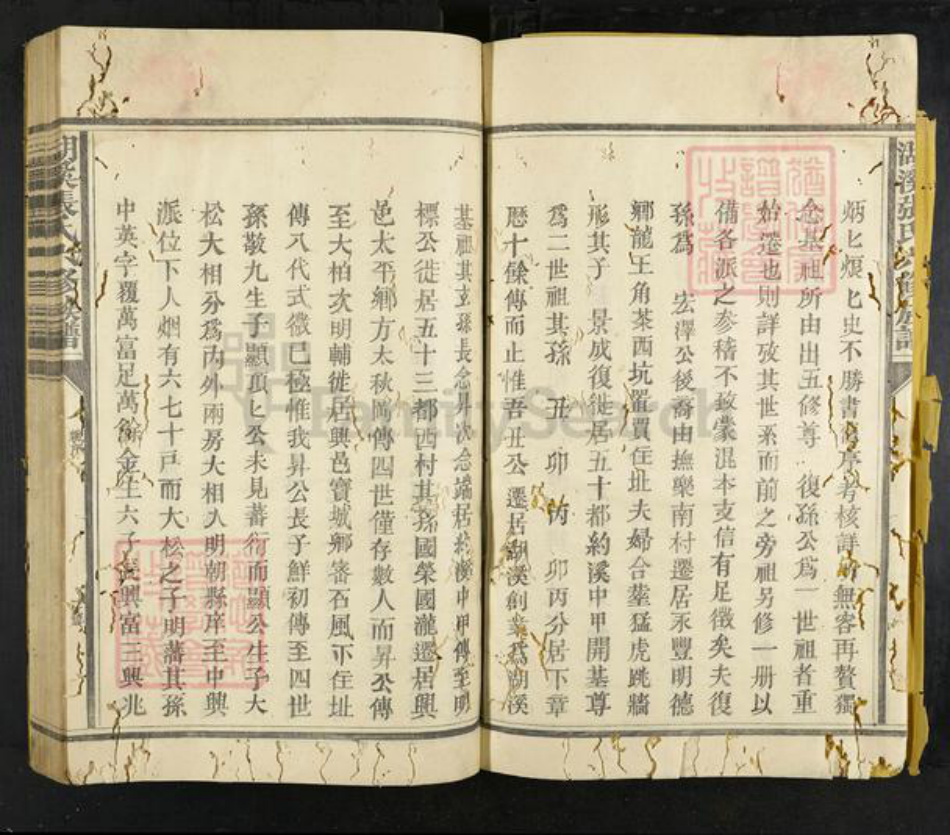 炳匕烺匕史不勝書舊序考核詳所無容再贅獨
念基祖所由出五修尊 復孫公為一世祖者重
始遷也則詳攷其世系而前之旁祖另修一册以
備各派之參稽不致蒙混本支信有足徵矣夫復
孫為 宏澤公後裔由撫樂南村遷居永豐明德
鄉龍王角茶西坑置買住址夫婦合塟猛虎跳牆
形其子 景成復徙居五十都約溪中甲開基尊
為二世祖其孫 丑 卯 丙 卯丙分居下章
歷十餘傳而止惟吾丑公 遷居湖溪創業為湖溪
基祖其玄孫長念昇次念端居約溪中甲傳至明
標公徙居五十三都西村其孫國榮國瀧遷居興
邑太平鄉方太秋圓傳四世僅存數人而昇公傳
至大柏次明輔徙居興邑寶城鄉審石風下住址
傳八代式微已極惟我昇公長子鮮初傳至四世
孫敬九生子顯頂匕公未見蕃衍而顯公生子大
松大相分為內外兩房大相入明朝縣庠至中興
派位下人烟有六七十戸而大松之子明藩其孫
中英字覆萬富足萬餘金生六子長興富三興兆
湖溪張氏 修族譜
湖溪張氏 修族譜
FamilySearch